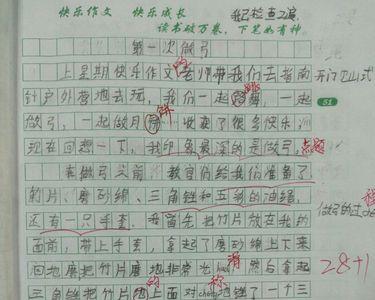 快乐作文 快乐成长 我已检查2遍
读书破万卷,下笔如有神
第一次做弓
上星期快乐作文的老师带我们去指南 开门见山式
针户外营地去玩,我们一起跳舞,一起 51
做弓,一起做月饼,收获了很多快乐,
现在回想一下,我印象最深的是做弓。 点题
在做弓之前,教官们给我们准备了
竹片、磨砂绵、三角锉和五彩的油绳,
还有一只手套。我首先把竹片放在我的 做弓的过
面前,带上手套,拿起了磨砂绵上下来
回地磨把竹片磨地非常光滑,然后拿起 28+1
三角锉把竹片的上面对称地锉了一个三